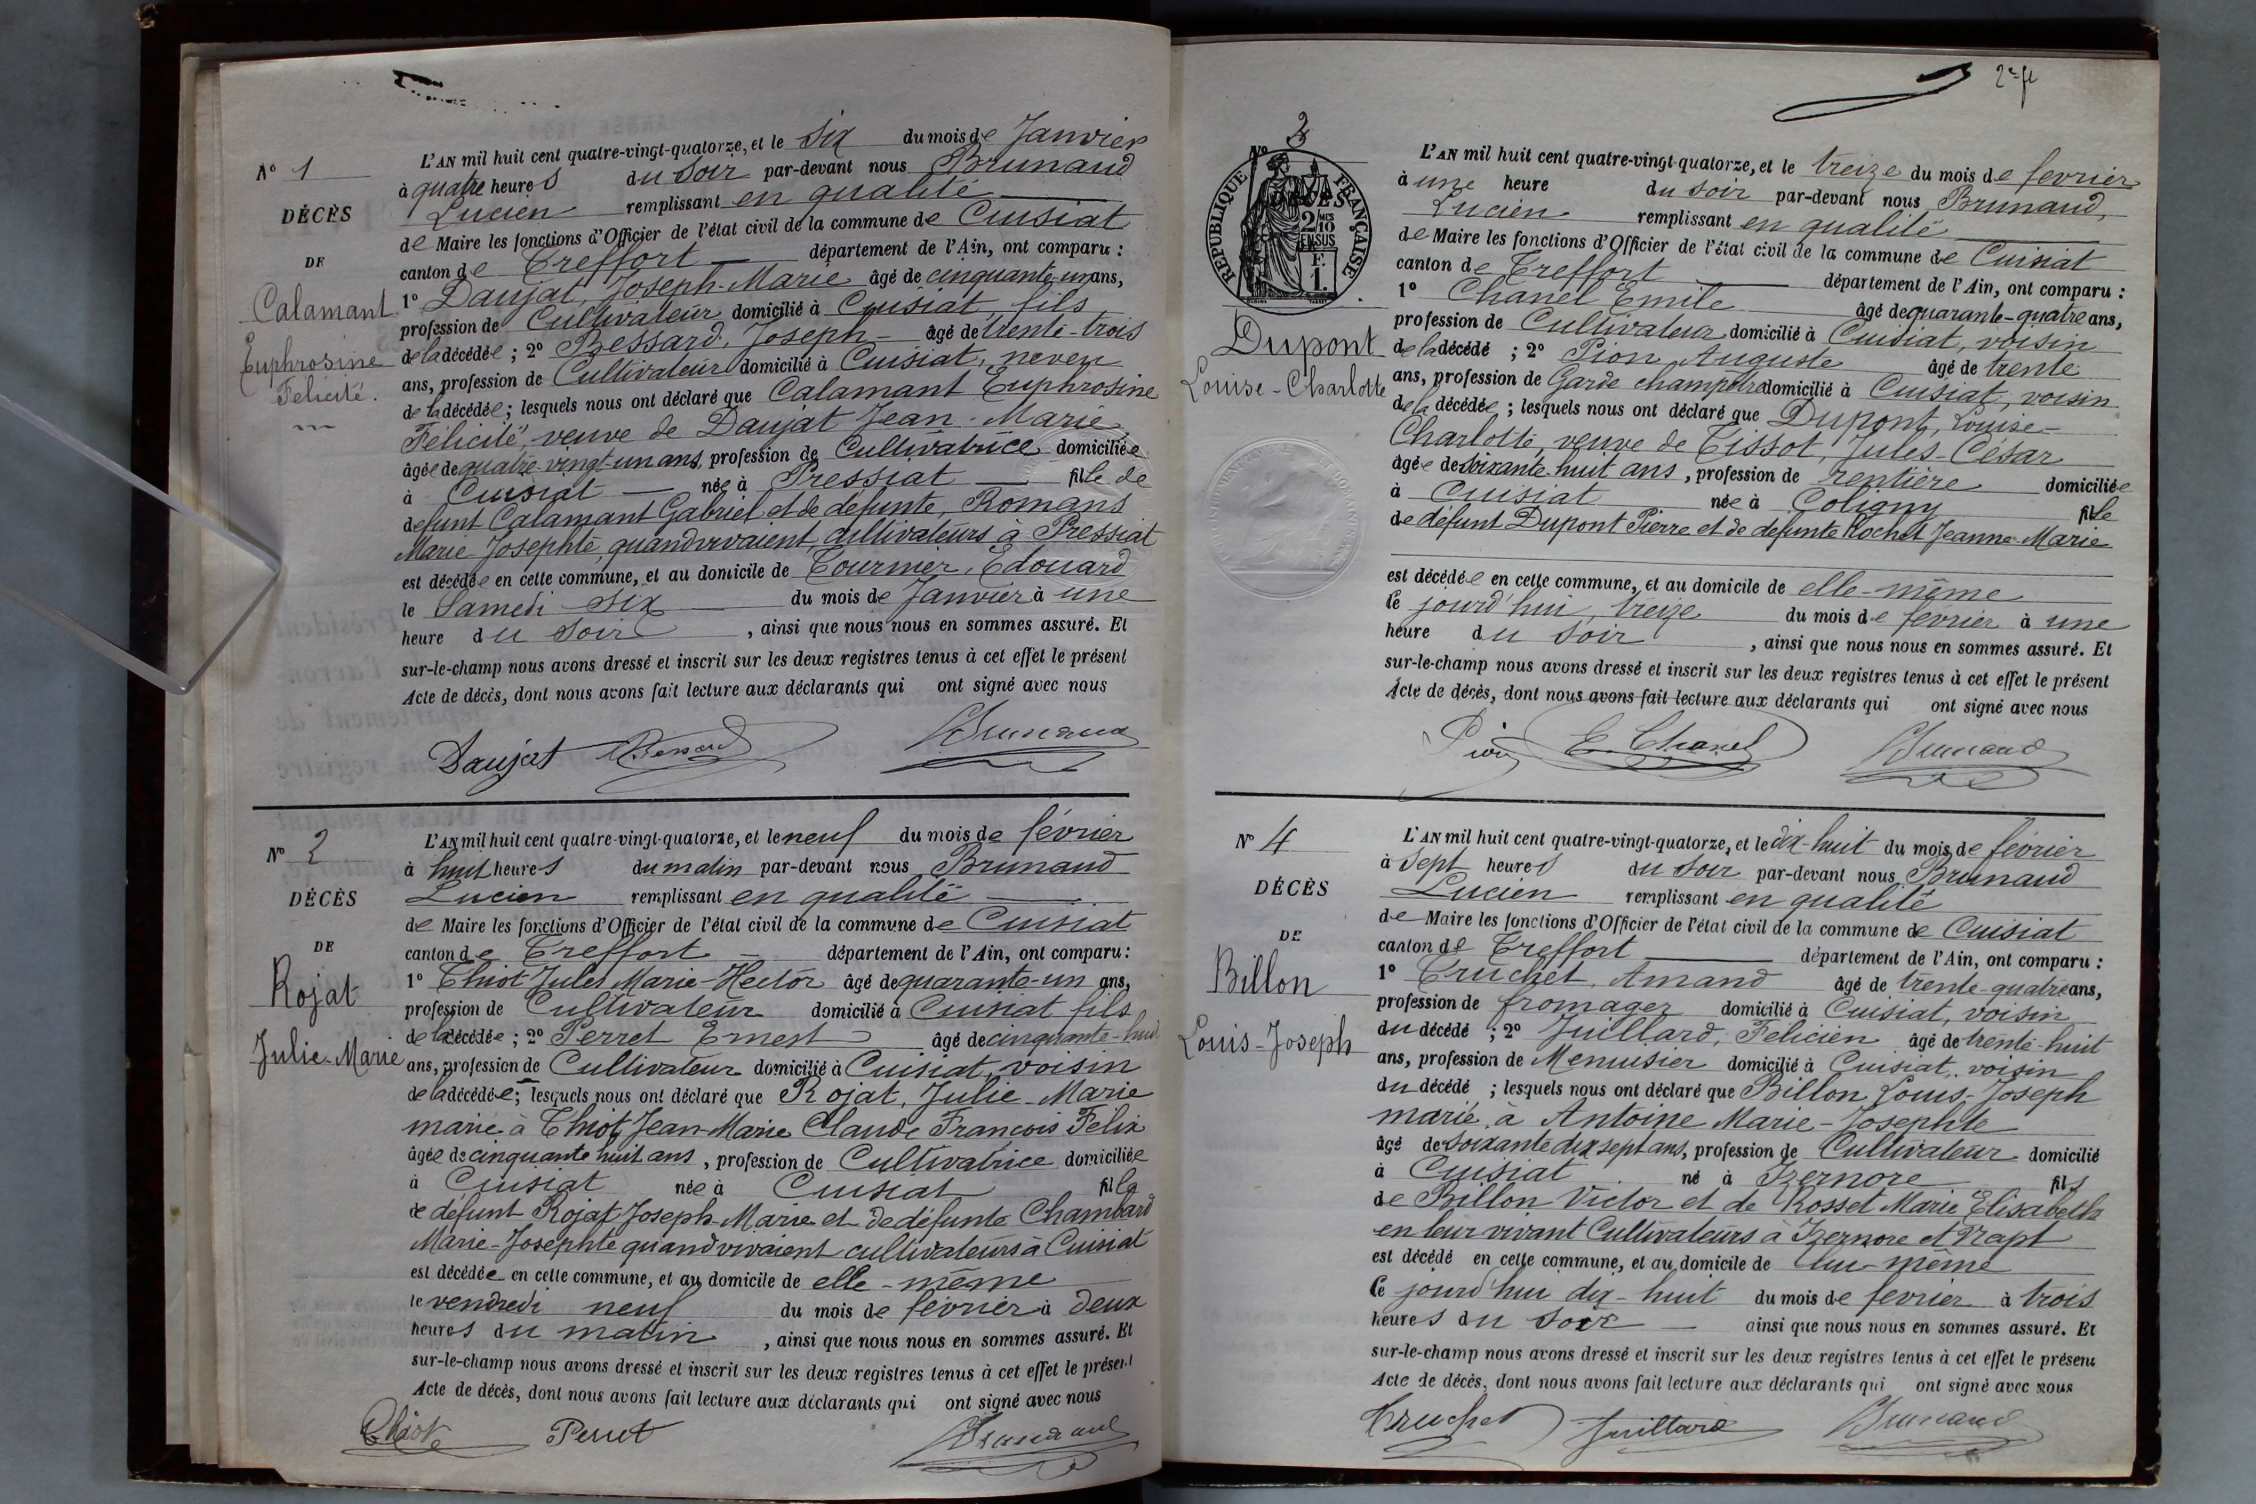 N° 1
DÉCÈS
DE
Calamant
Euphrosine
Félicité.
L'AN mil huit cent quatre-vingt-quatorze, et le six du mois de Janvier
à quatre heures du soir par-devant nous Brunaud
Lucien remplissant en qualité
de Maire les fonctions d'Officier de l'état civil de la commune de Cuisiat
canton de Treffort département de l'Ain, ont comparu :
1° Daujat, Joseph-Marie âgé de cinquante-un ans,
profession de Cultivateur domicilié à Cuisiat, fils
de la décédée ; 2° Bessard, Joseph âgé de trente-trois
ans, profession de Cultivateur domicilié à Cuisiat, neveu
de la décédée ; lesquels nous ont déclaré que Calamant Euphrosine
Félicité, veuve de Daujat Jean-Marie,
âgée de quatre-vingt-un ans, profession de Cultivatrice domiciliée
à Cuisiat née à Pressiat fille de
défunt Calamant Gabriel et de défunte, Romans
Marie Josephte, quand vivaient, cultivateurs à Pressiat
est décédée en cette commune, et au domicile de Tournier, Edouard
le Samedi six du mois de Janvier à une
heure du soir, ainsi que nous nous en sommes assuré. Et
sur-le-champ nous avons dressé et inscrit sur les deux registres tenus à cet effet le présent
Acte de décès, dont nous avons fait lecture aux déclarants qui ont signé avec nous
Daujat Bessard Brunaud
N° 2
DÉCÈS
DE
Rojat
Julie-Marie
L'AN mil huit cent quatre-vingt-quatorze, et le neuf du mois de février
à huit heures du matin par-devant nous Brunaud
Lucien remplissant en qualité
de Maire les fonctions d'Officier de l'état civil de la commune de Cuisiat
canton de Treffort département de l'Ain, ont comparu :
1° Thiot Jules Marie-Hector âgé de quarante-un ans,
profession de Cultivateur domicilié à Cuisiat fils
de la décédée ; 2° Perret Ernest âgé de cinquante-huit
ans, profession de Cultivateur domicilié à Cuisiat, voisin
de la décédée ; lesquels nous ont déclaré que Rojat, Julie-Marie
marie à Thiot, Jean-Marie Claude François Félix
âgée de cinquante huit ans, profession de Cultivatrice domiciliée
à Cuisiat née à Cuisiat fille
de défunt Rojat Joseph-Marie et de défunte Chambard
Marie-Josephte quand vivaient cultivateurs à Cuisiat
est décédée en cette commune, et au domicile de elle-même
le vendredi neuf du mois de février à deux
heures du matin, ainsi que nous nous en sommes assuré. Et
sur-le-champ nous avons dressé et inscrit sur les deux registres tenus à cet effet le présent
Acte de décès, dont nous avons fait lecture aux déclarants qui ont signé avec nous
Thiot Perret Brunaud
2e f
N° 3
DÉCÈS
RÉPUBLIQUE FRANÇAISE
2/10 EN SUS
F. 1.
Dupont
Louise-Charlotte
L'AN mil huit cent quatre-vingt-quatorze, et le treize du mois de février
à une heure du soir par-devant nous Brunaud,
Lucien remplissant en qualité
de Maire les fonctions d'Officier de l'état civil de la commune de Cuisiat
canton de Treffort département de l'Ain, ont comparu :
1° Chanel Emile âgé de quarante-quatre ans,
profession de Cultivateur domicilié à Cuisiat, voisin
de la décédé ; 2° Pion Auguste âgé de trente
ans, profession de Garde champêtre domicilié à Cuisiat, voisin
de la décédée ; lesquels nous ont déclaré que Dupont, Louise-
Charlotte, veuve de Tissot, Jules-César
âgée de soixante-huit ans, profession de rentière domiciliée
à Cuisiat née à Coligny fille
de défunt Dupont Pierre et de défunte Rochet Jeanne-Marie
est décédée en cette commune, et au domicile de elle-même
Ce jourd'hui, treize du mois de février à une
heure du soir, ainsi que nous nous en sommes assuré. Et
sur-le-champ nous avons dressé et inscrit sur les deux registres tenus à cet effet le présent
Acte de décès, dont nous avons fait lecture aux déclarants qui ont signé avec nous
Pion E. Chanel Brunaud
N° 4
DÉCÈS
DE
Billon
Louis-Joseph
L'AN mil huit cent quatre-vingt-quatorze, et le dix-huit du mois de février
à sept heures du soir par-devant nous Brunaud
Lucien remplissant en qualité
de Maire les fonctions d'Officier de l'état civil de la commune de Cuisiat
canton de Treffort département de l'Ain, ont comparu :
1° Truchet, Amand âgé de trente-quatre ans,
profession de fromager domicilié à Cuisiat, voisin
du décédé ; 2° Juillard, Félicien âgé de trente-huit
ans, profession de Menuisier domicilié à Cuisiat, voisin
du décédé ; lesquels nous ont déclaré que Billon Louis-Joseph
marié à Antoine Marie-Josephte
âgé de soixante dix sept ans, profession de Cultivateur domicilié
à Cuisiat né à Izernore fils
de Billon Victor et de Rosset Marie Elisabeth
en leur vivant Cultivateurs à Izernore et
est décédé en cette commune, et au domicile de lui-même
Ce jourd'hui dix-huit du mois de février à trois
heures du soir ainsi que nous nous en sommes assuré. Et
sur-le-champ nous avons dressé et inscrit sur les deux registres tenus à cet effet le présent
Acte de décès, dont nous avons fait lecture aux déclarants qui ont signé avec nous
Truchet Juillard Brunaud